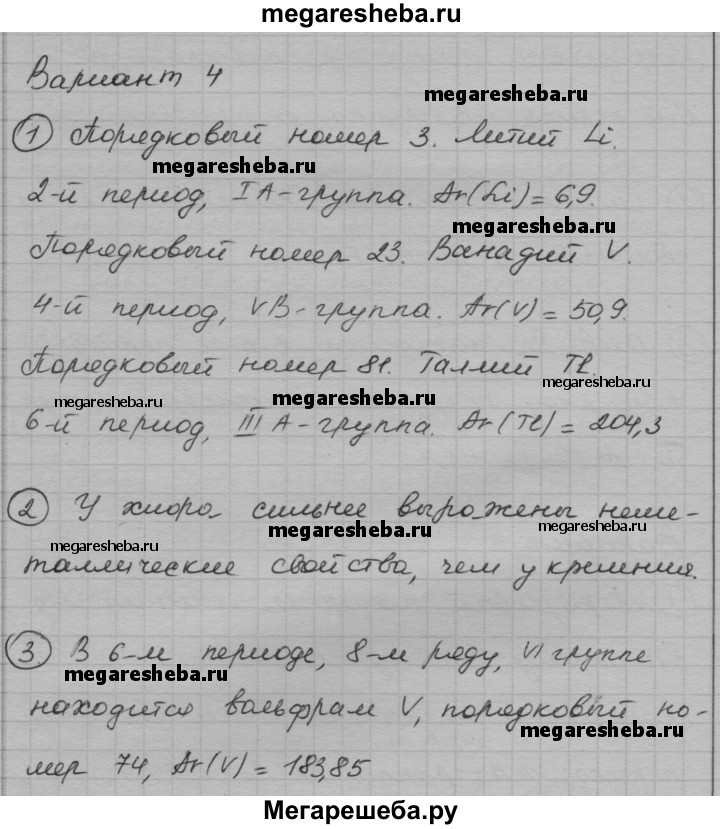 megaresheba.ru
Вариант 4
megaresheba.ru
① Порядковый номер 3. Литий Li.
megaresheba.ru
2-й период, IА-группа. Ar(Li) = 6,9.
megaresheba.ru
Порядковый номер 23. Ванадий V.
4-й период, VВ-группа. Ar(V) = 50,9.
Порядковый номер 81. Таллий Tl.
megaresheba.ru
megaresheba.ru
megaresheba.ru
6-й период, III А-группа. Ar(Tl) = 204,3
② У хлора сильнее выражены неме-
megaresheba.ru
megaresheba.ru
megaresheba.ru
таллические свойства, чем у кремния.
③ В 6-м периоде, 8-м ряду, VI группе
megaresheba.ru
находится вольфрам V, порядковый но-
megaresheba.ru
мер 74, Ar(V) = 183,85
Мегарешеба.ру